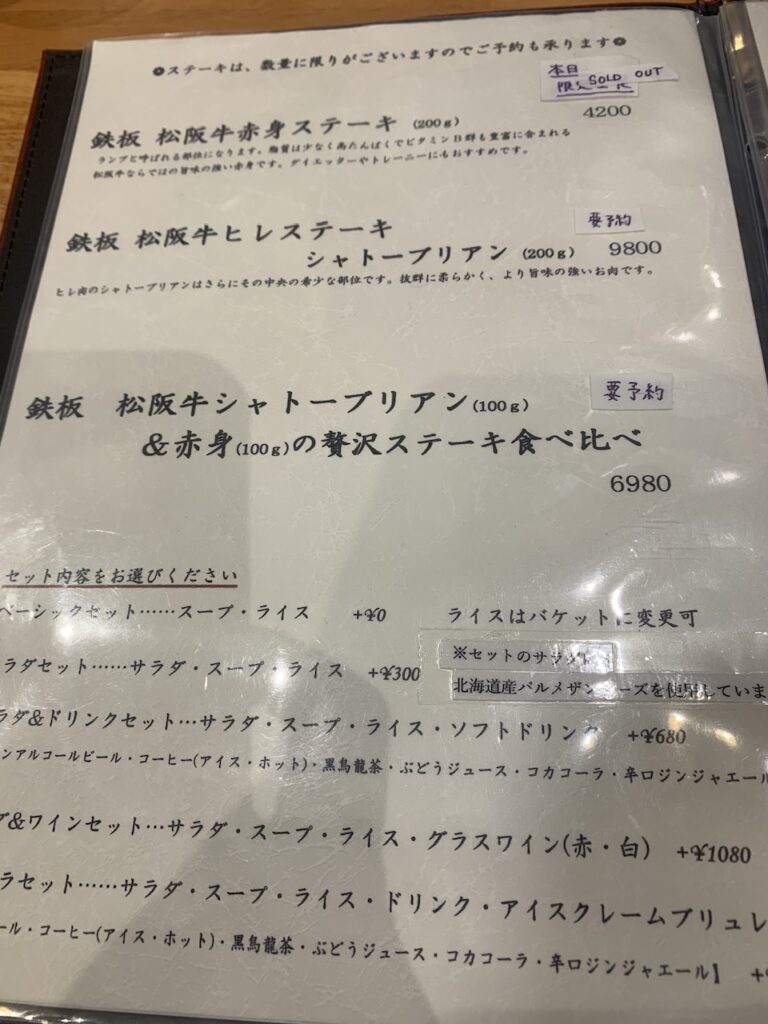 ❁ステーキは、数量に限りがございますのでご予約も承ります❁
本日
SOLD OUT
鉄板 松阪牛赤身ステーキ (200g) 4200
ランプと呼ばれる部位になります。脂質は少なく高たんぱくでビタミンB群も豊富に含まれる
松阪牛ならではの旨味の強い赤身です。ダイエッターやトレーニーにもおすすめです。
要予約
鉄板 松阪牛ヒレステーキ
シャトーブリアン (200g) 9800
ヒレ肉のシャトーブリアンはさらにその中央の希少な部位です。抜群に柔らかく、より旨味の強いお肉です。
要予約
鉄板 松阪牛シャトーブリアン(100g)
&赤身(100g)の贅沢ステーキ食べ比べ
6980
セット内容をお選びください
ベーシックセット……スープ・ライス +¥0 ライスはバケットに変更可
ラダセット……サラダ・スープ・ライス +¥300
※セットのサラダ
北海道産パルメザンチーズを使用していま
ラダ&ドリンクセット…サラダ・スープ・ライス・ソフトドリンク +¥680
ンアルコールビール・コーヒー(アイス・ホット)・黒烏龍茶・ぶどうジュース・コカコーラ・辛口ジンジャエール
ダ&ワインセット…サラダ・スープ・ライス・グラスワイン(赤・白) +¥1080
ラセット……サラダ・スープ・ライス・ドリンク・アイスクレームブリュレ
ール・コーヒー(アイス・ホット)・黒烏龍茶・ぶどうジュース・コカコーラ・辛口ジンジャエール】 +